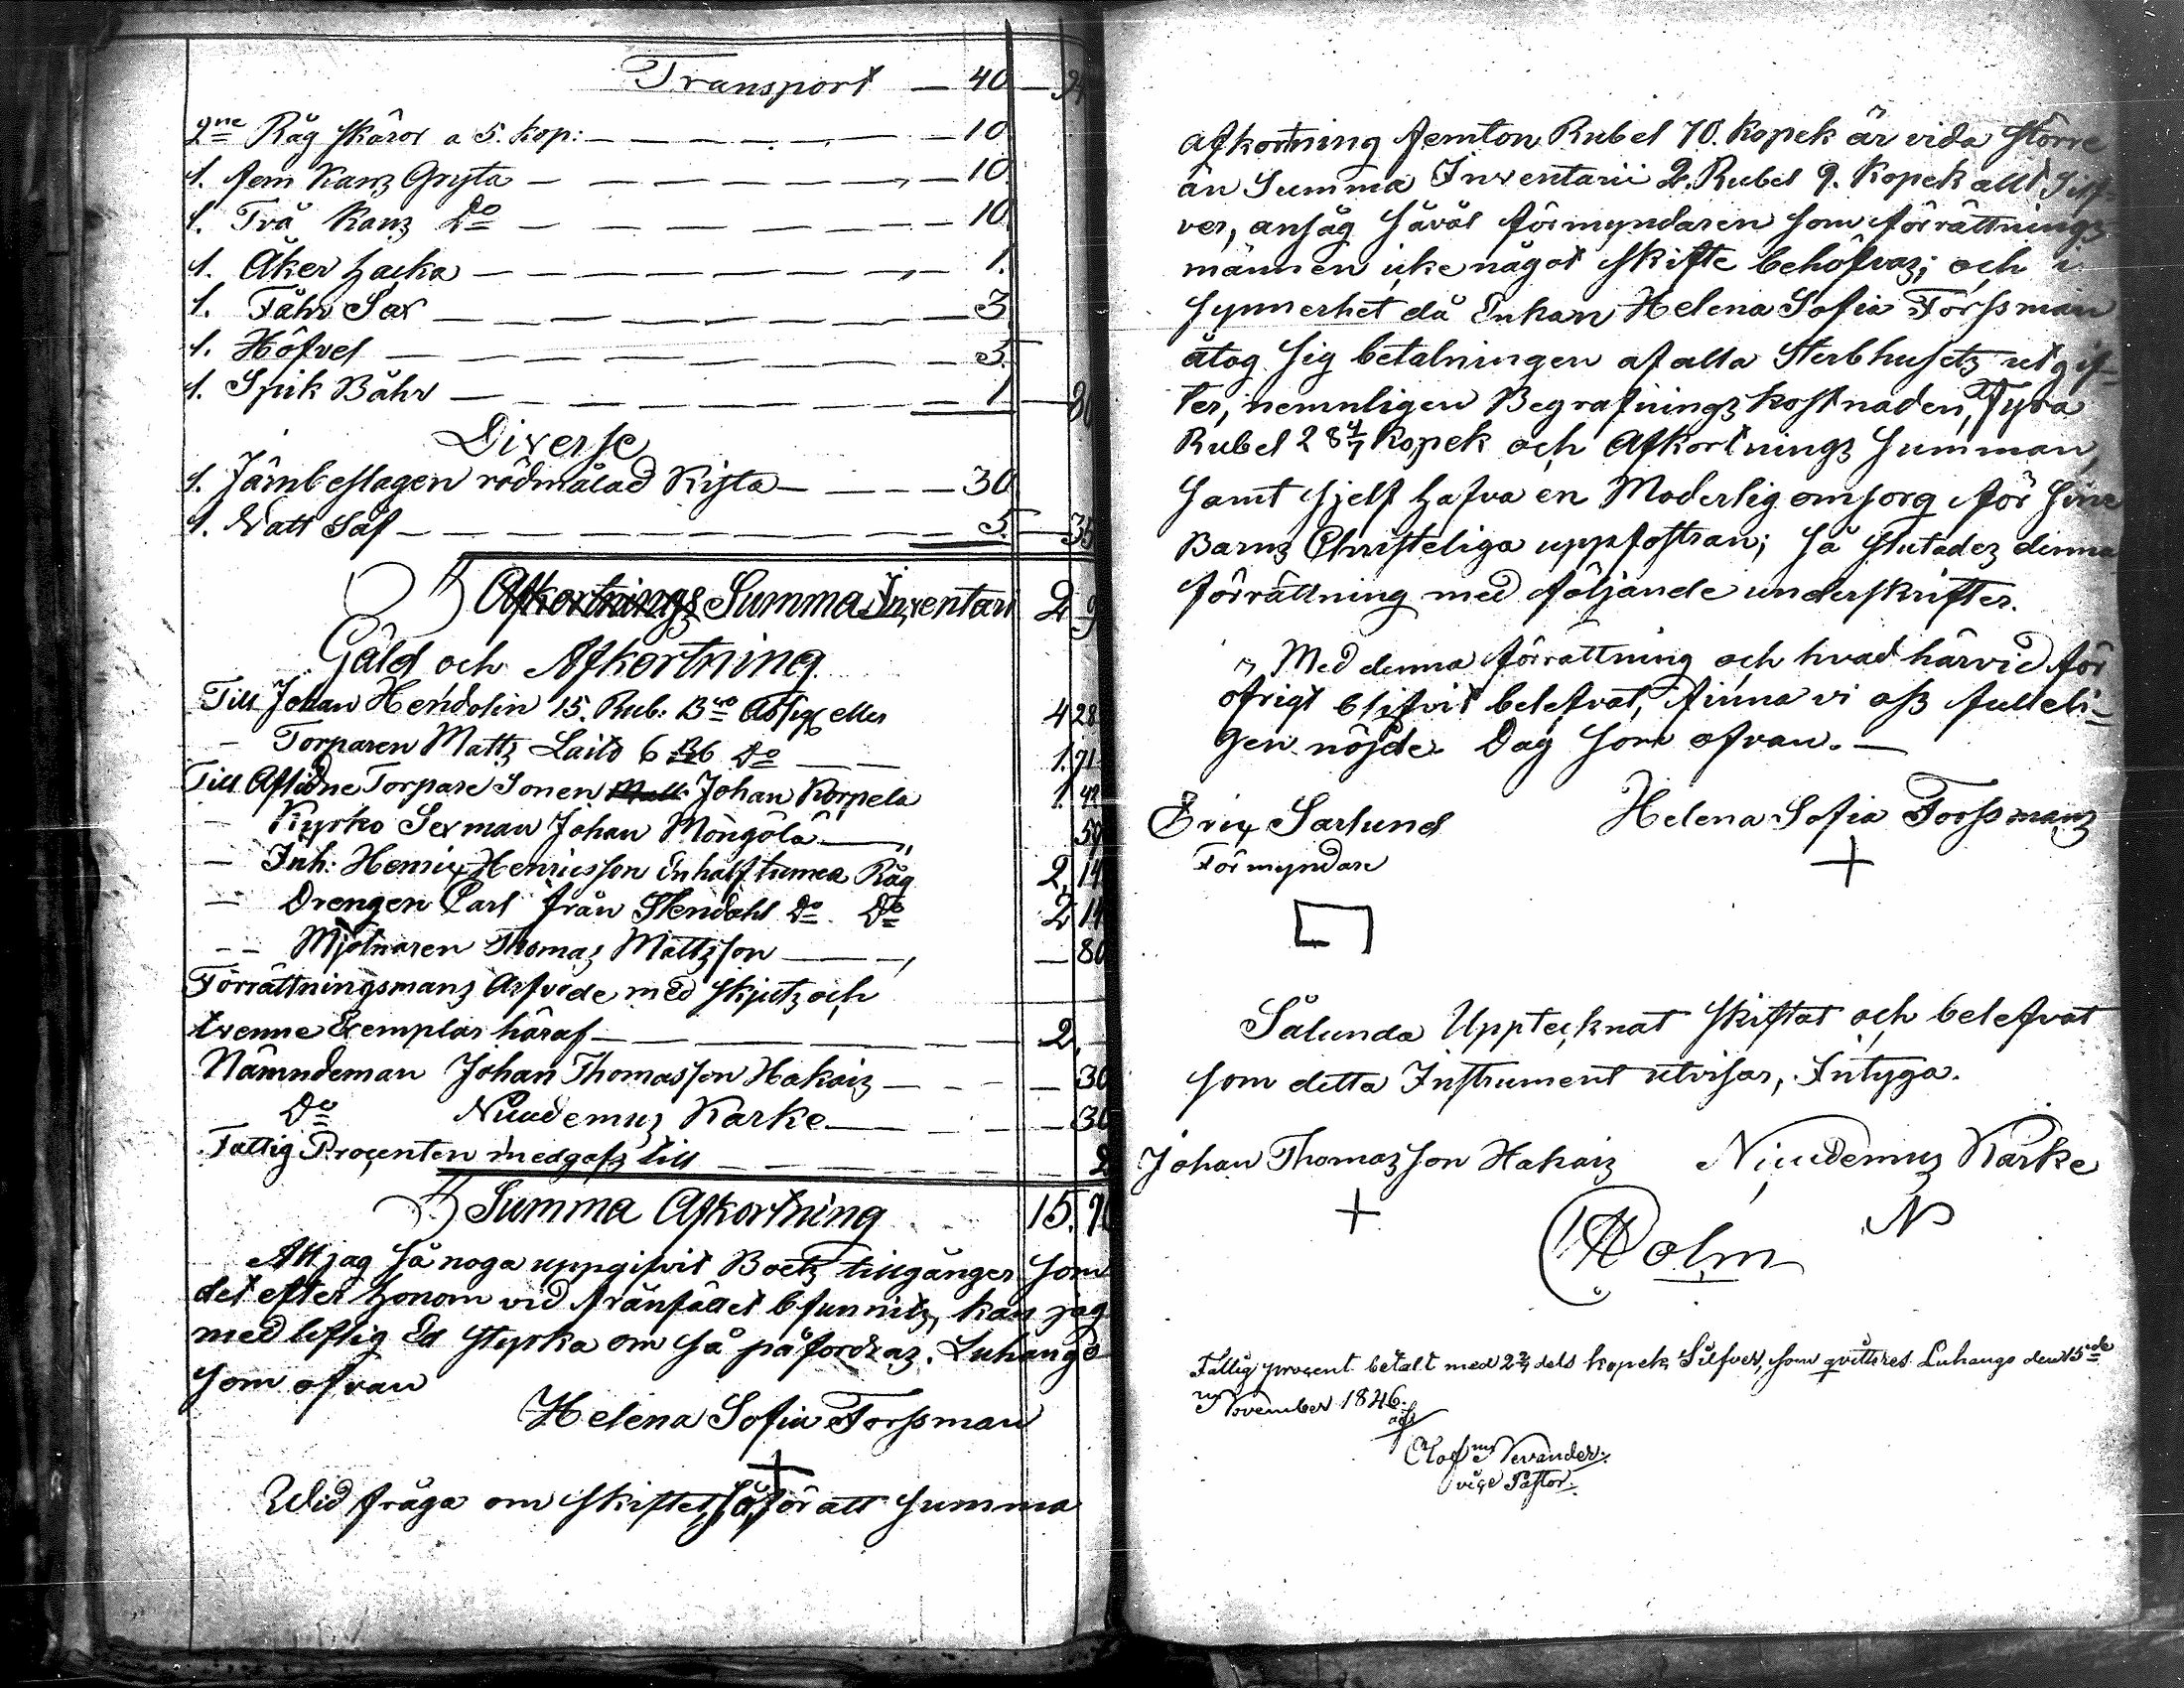 Transport — 40 — 94
2ne Råg skäror a 5. kop: — 10
1. fem Kanz Gryta — 10
1. Två Kanz Do — 10
1. Åker hacka — 1.
1. Fåhr Sax — 3
1. Höfvel — 5
1. Spik Båhr — 1
Diverse
1. Järnbeslagen rödmålad Kista — 30
1. Natt Säf — 5. — 35
Summa Inventari 2 9
Gäld och Afkortning
Till Johan Hendolin 15. Rub: Bco Assig: eller 4 28
— Torparen Matts Laito 6 Do 1. 71
Till Aflidne Torpare Sonen Johan Korpela 1.
— Kyrko Sexman Johan Möngölä —
— Inh: Henrix Henricsson En half tunna Råg 2, 14
— Drengen Carl från Stendahl Do Do 2 14
— Mjölnaren Thomas Mattsson — 80
Förrättningsmans Arfvode med skjuts och
tvenne Exemplar häraf — 2, —
Nämndeman Johan Thomasson Hakais — 30
Do Nicodemus Karke — 30
Fattig Procenten medgafs till — 2
Summa Afkortning 15.
Att jag så noga uppgifvit Boets tillgånger som
det efter honom vid frånfället befunnits, kan jag
med liflig Ed styrka om så påfordras. Luhango
som ofvan
Helena Sofia Forssman
+
Wid fråga om skiftet, så för att Summa
afkortning femton Rubel 70. kopek är vida större
än Summa Inventarii 2. Rubel 9. kopek allt Silf-
ver, ansåg såväl förmyndaren som förrättnings-
männen icke något skifte behöfvas; och i
synnerhet då Enkan Helena Sofia Forssman
åtog sig betalningen af alla Sterbhusets utgif-
ter, nemnligen Begrafnings kostnaden, Fyra
Rubel 28 4/7 kopek och Afkortnings Summan,
samt sjelf hafva en Moderlig omsorg för sine
Barns Christeliga uppfostran; så slutades denna
förrättning med följande underskrifter.
Med denna förrättning och hvad härvid för
öfrigt blifvit belefvat, finna vi oss fulleli-
gen nöjde. Dag som ofvan. —
Erix Sarlund Helena Sofia Forssmans
Förmyndare +
Sålunda Upptecknat skiftat och belefvat
som detta Instrument utvisar, Intyga.
Johan Thomasson Hakais Nicodemus Karke
+ N
Holm
Fattig procent betalt med 2 2/7 dels kopek Silfver, som qvitteres Luhango den 15de
November 1846.
Olof Nevander.
vice Pastor.